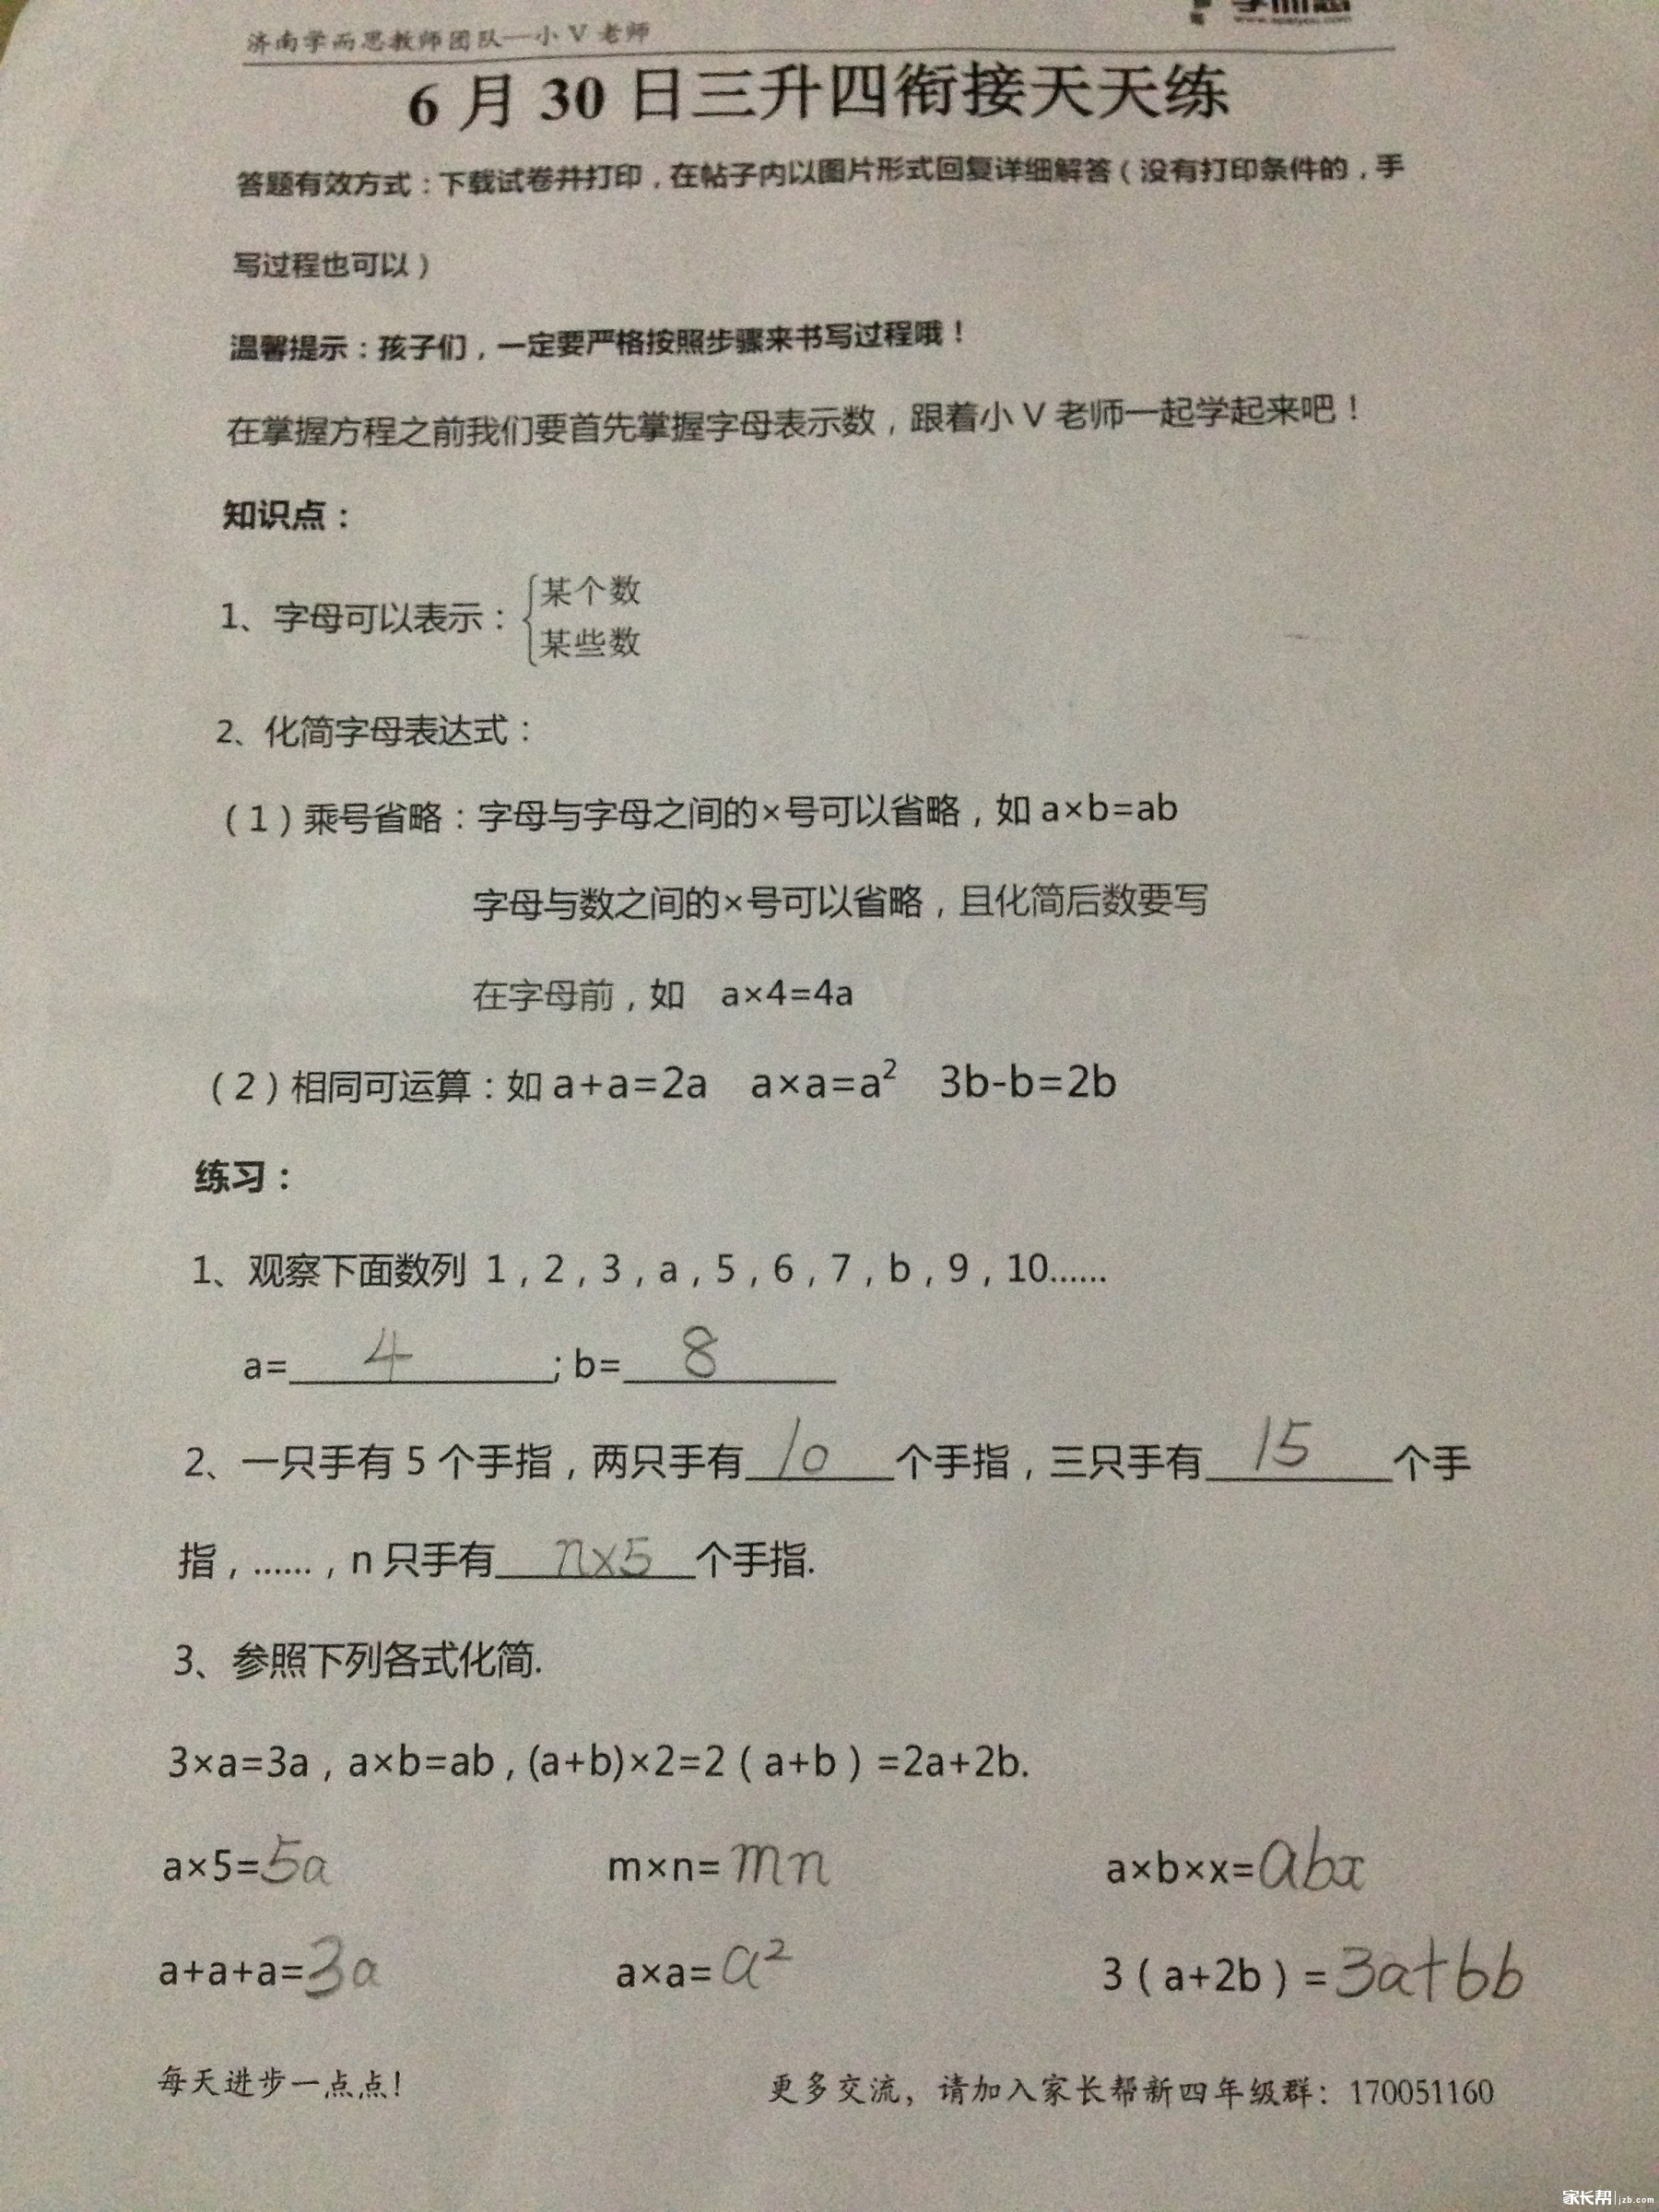 济南学而思教师团队—小V老师
6月30日三升四衔接天天练
答题有效方式：下载试卷并打印，在帖子内以图片形式回复详细解答（没有打印条件的，手
写过程也可以）
温馨提示：孩子们，一定要严格按照步骤来书写过程哦！
在掌握方程之前我们要首先掌握字母表示数，跟着小V老师一起学起来吧！
知识点：
1、字母可以表示：{某个数
某些数
2、化简字母表达式：
（1）乘号省略：字母与字母之间的×号可以省略，如a×b=ab
字母与数之间的×号可以省略，且化简后数要写
在字母前，如 a×4=4a
（2）相同可运算：如a+a=2a a×a=a² 3b-b=2b
练习：
1、观察下面数列 1，2，3，a，5，6，7，b，9，10……
a=4; b=8
2、一只手有5个手指，两只手有10个手指，三只手有15个手
指，……，n只手有n×5个手指.
3、参照下列各式化简.
3×a=3a，a×b=ab，(a+b)×2=2（a+b）=2a+2b.
a×5=5a m×n=mn a×b×x=abx
a+a+a=3a a×a=a² 3（a+2b）=3a+6b
每天进步一点点！ 更多交流，请加入家长帮新四年级群：170051160
家长帮|jzb.com